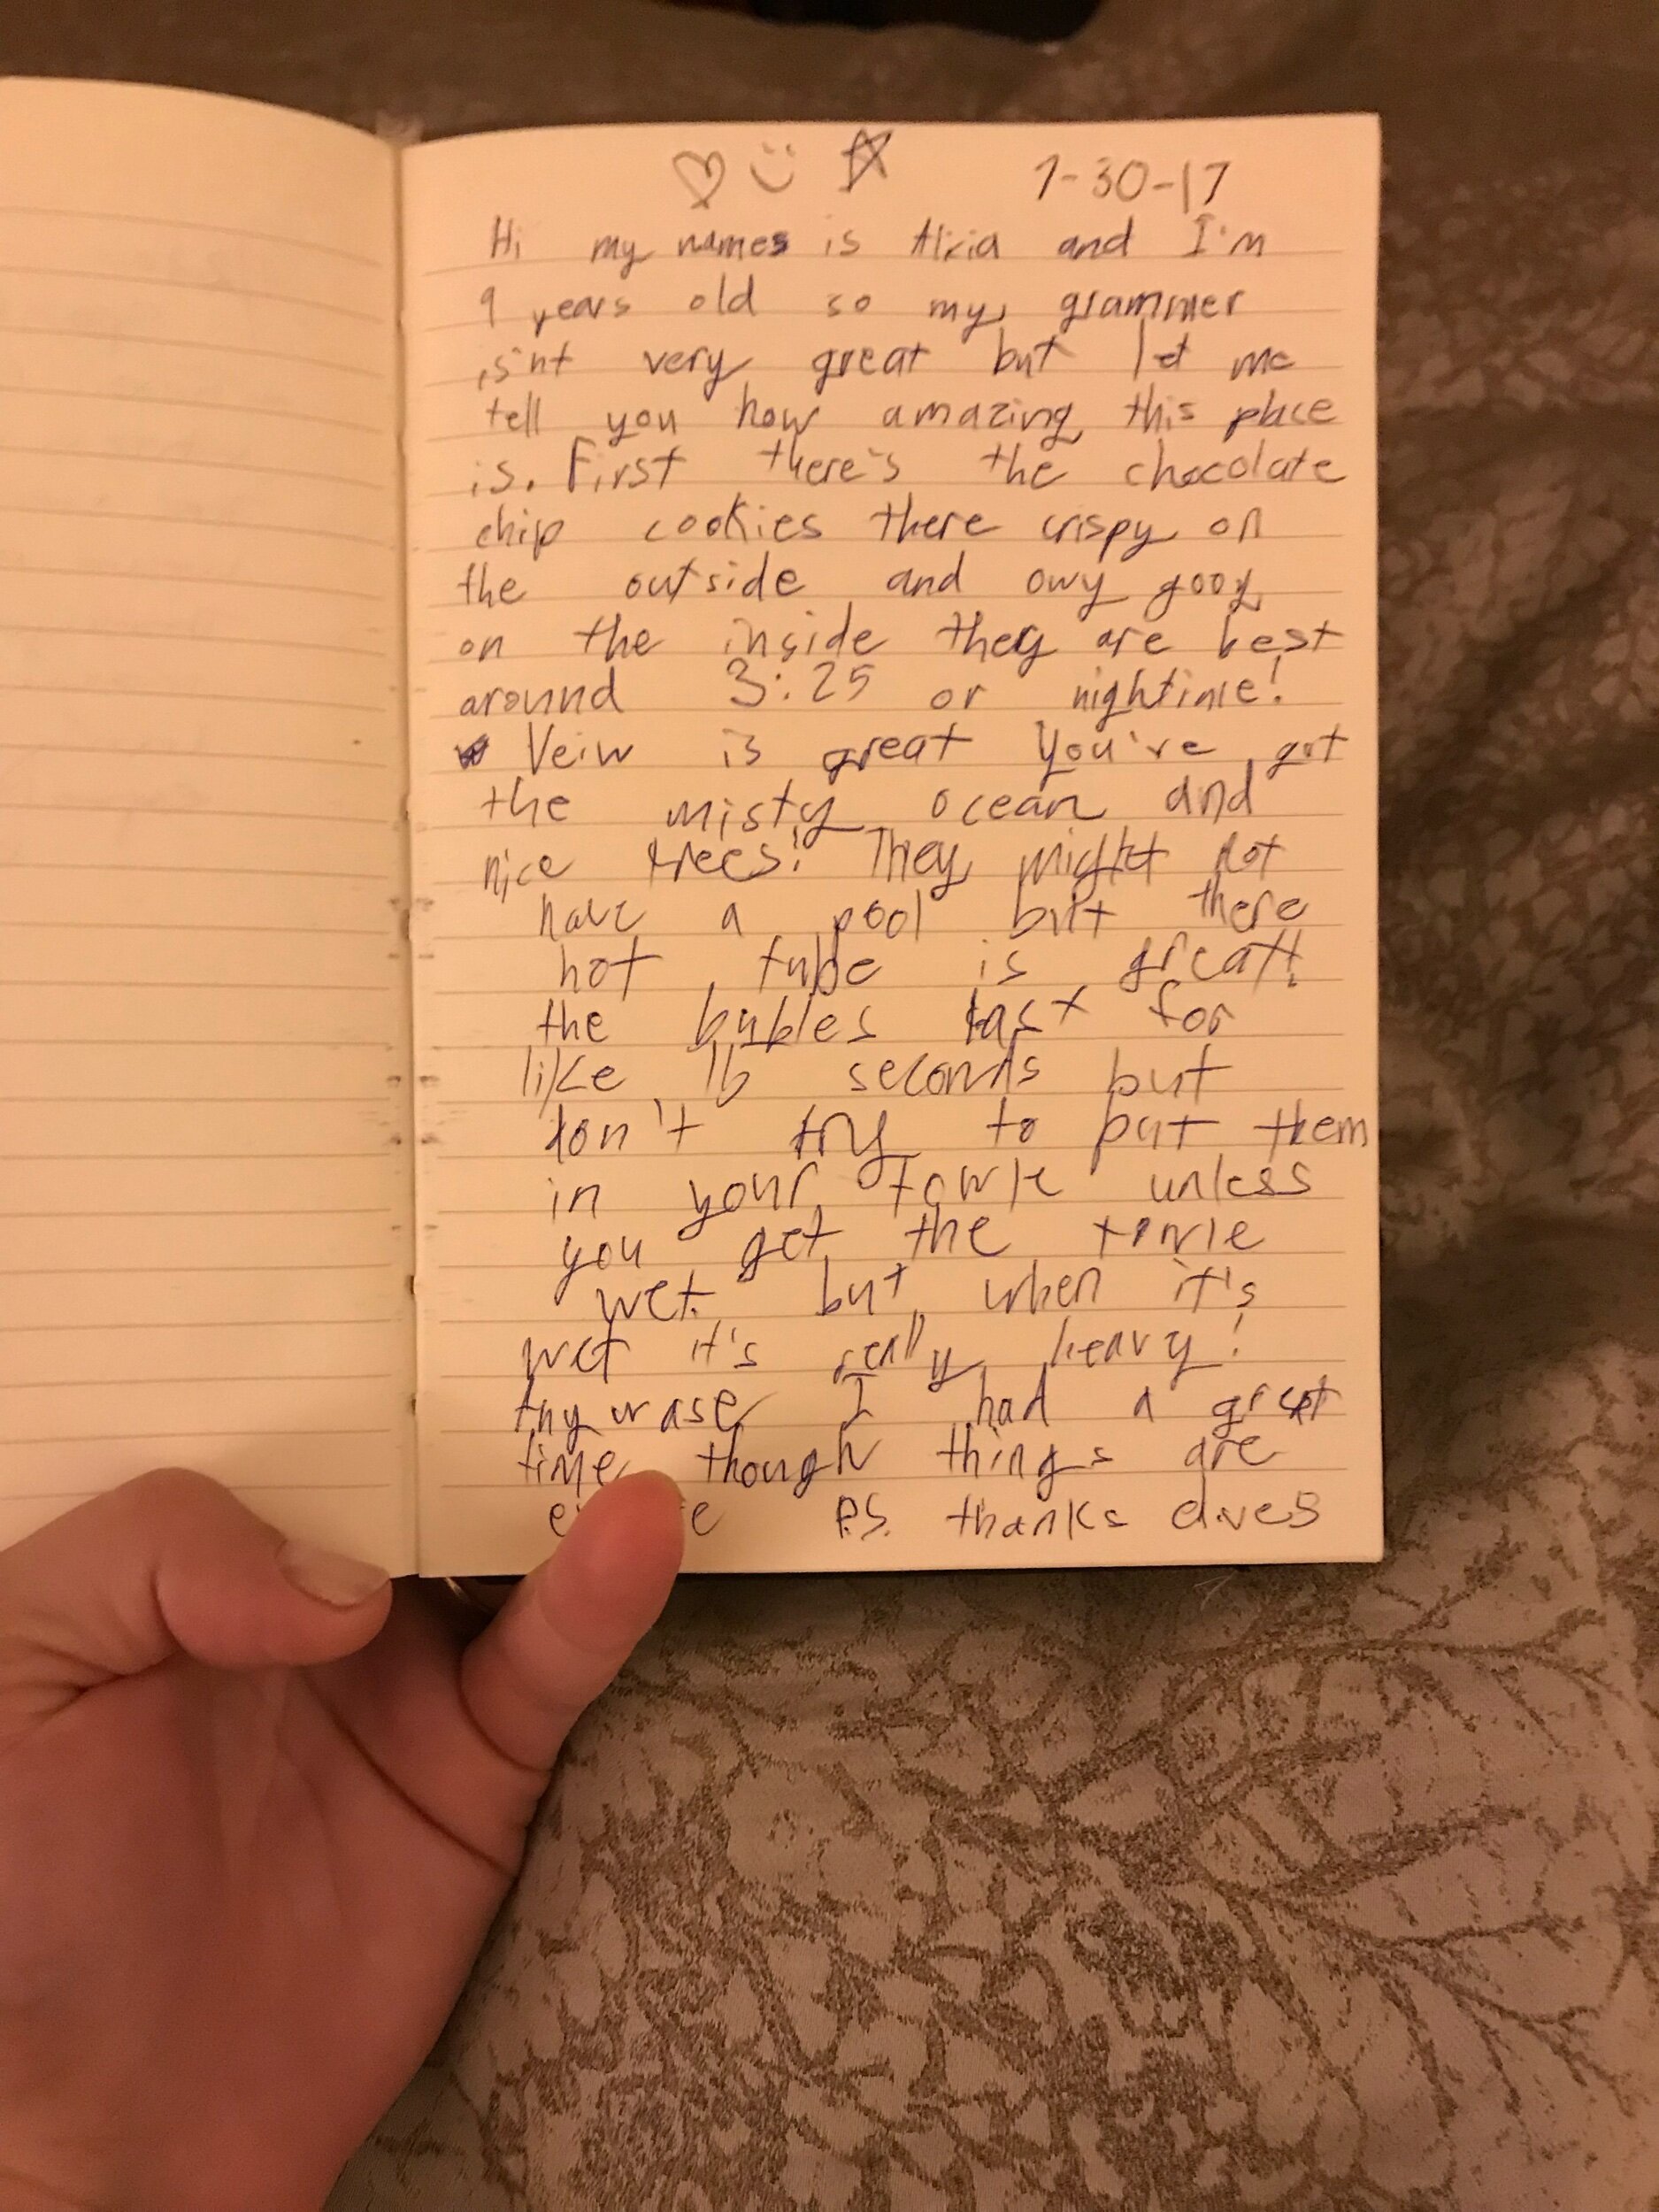 7-30-17
Hi my names is Alxia and I'm
9 years old so my grammer
isint very great but let me
tell you how amazing this place
is. First there's the chocolate
chip cookies there crispy on
the outside and owy gooy
on the inside they are best
around 3:25 or nightime!
Veiw is great you've got
the misty ocean and
nice trees! They might not
have a pool but there
hot tube is great!
the bubles last for
like 16 seconds but
don't try to put them
in your towle unless
you get the towle
wet. but when it's
wet it's really heavy!
Anywase I had a great
time though things are
P.S. thanks